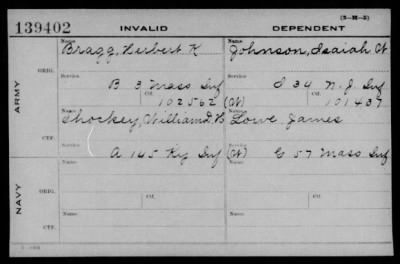 (3-M-5)
139402 INVALID DEPENDENT
Name Name
Bragg, Herbert K Johnson, Isaiah W
ORIG.
Service Service
B 3 Mass Inf I 34 N.J. Inf
Ctf. Ctf.
102562 (Ct) 101437
ARMY
Name Name
Shockey, William H Lowe, James
CTF.
Service Service
A 145 Ky Inf (Ct) G 57 Mass Inf
NAVY
Name Name
ORIG.
Name Name
CTF.